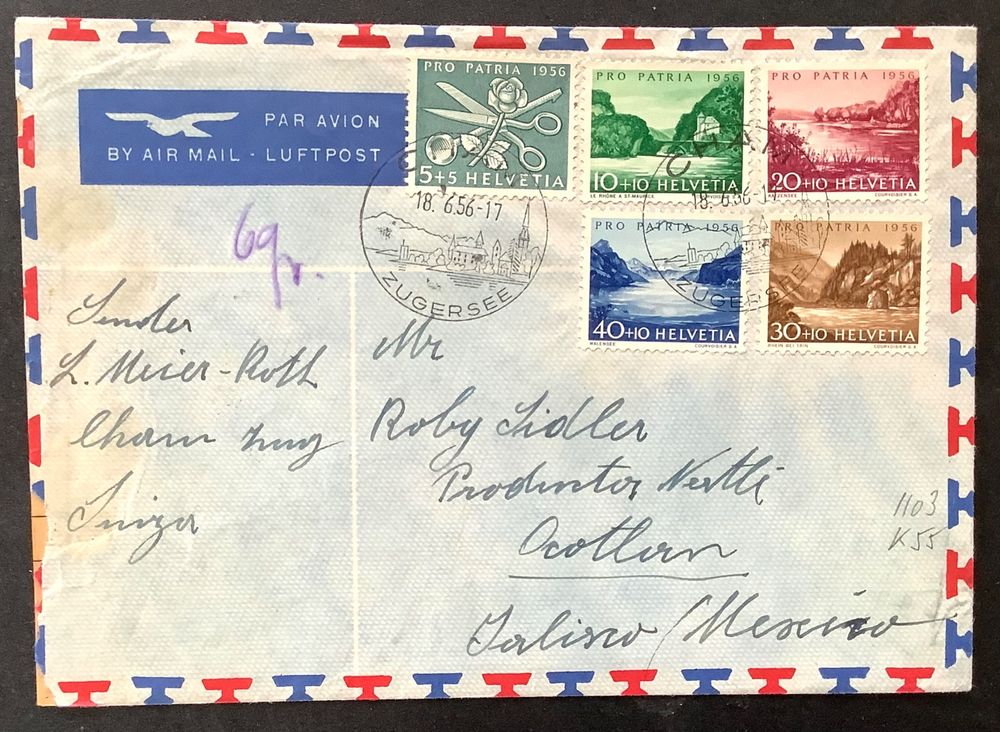 PAR AVION
BY AIR MAIL - LUFTPOST
PRO PATRIA 1956
5+5 HELVETIA
PRO PATRIA 1956
10+10 HELVETIA
LE RHÔNE A ST-MAURICE
PRO PATRIA 1956
20+10 HELVETIA
KATZENSEE COURVOISIER S.A.
CHAM
18. 6.56-17
ZUGERSEE
CHAM
18. 6.56-17
ZUGERSEE
PRO PATRIA 1956
40+10 HELVETIA
WALENSEE COURVOISIER S.A.
PRO PATRIA 1956
30+10 HELVETIA
RHEIN BEI TRIN COURVOISIER S.A.
6gr.
Sender
L. Meier-Roth
Cham Zug
Suiza
Mr
Roby Sidler
Productos Nestlé
Ocotlan
Jalisco / Mexico
1103
K55